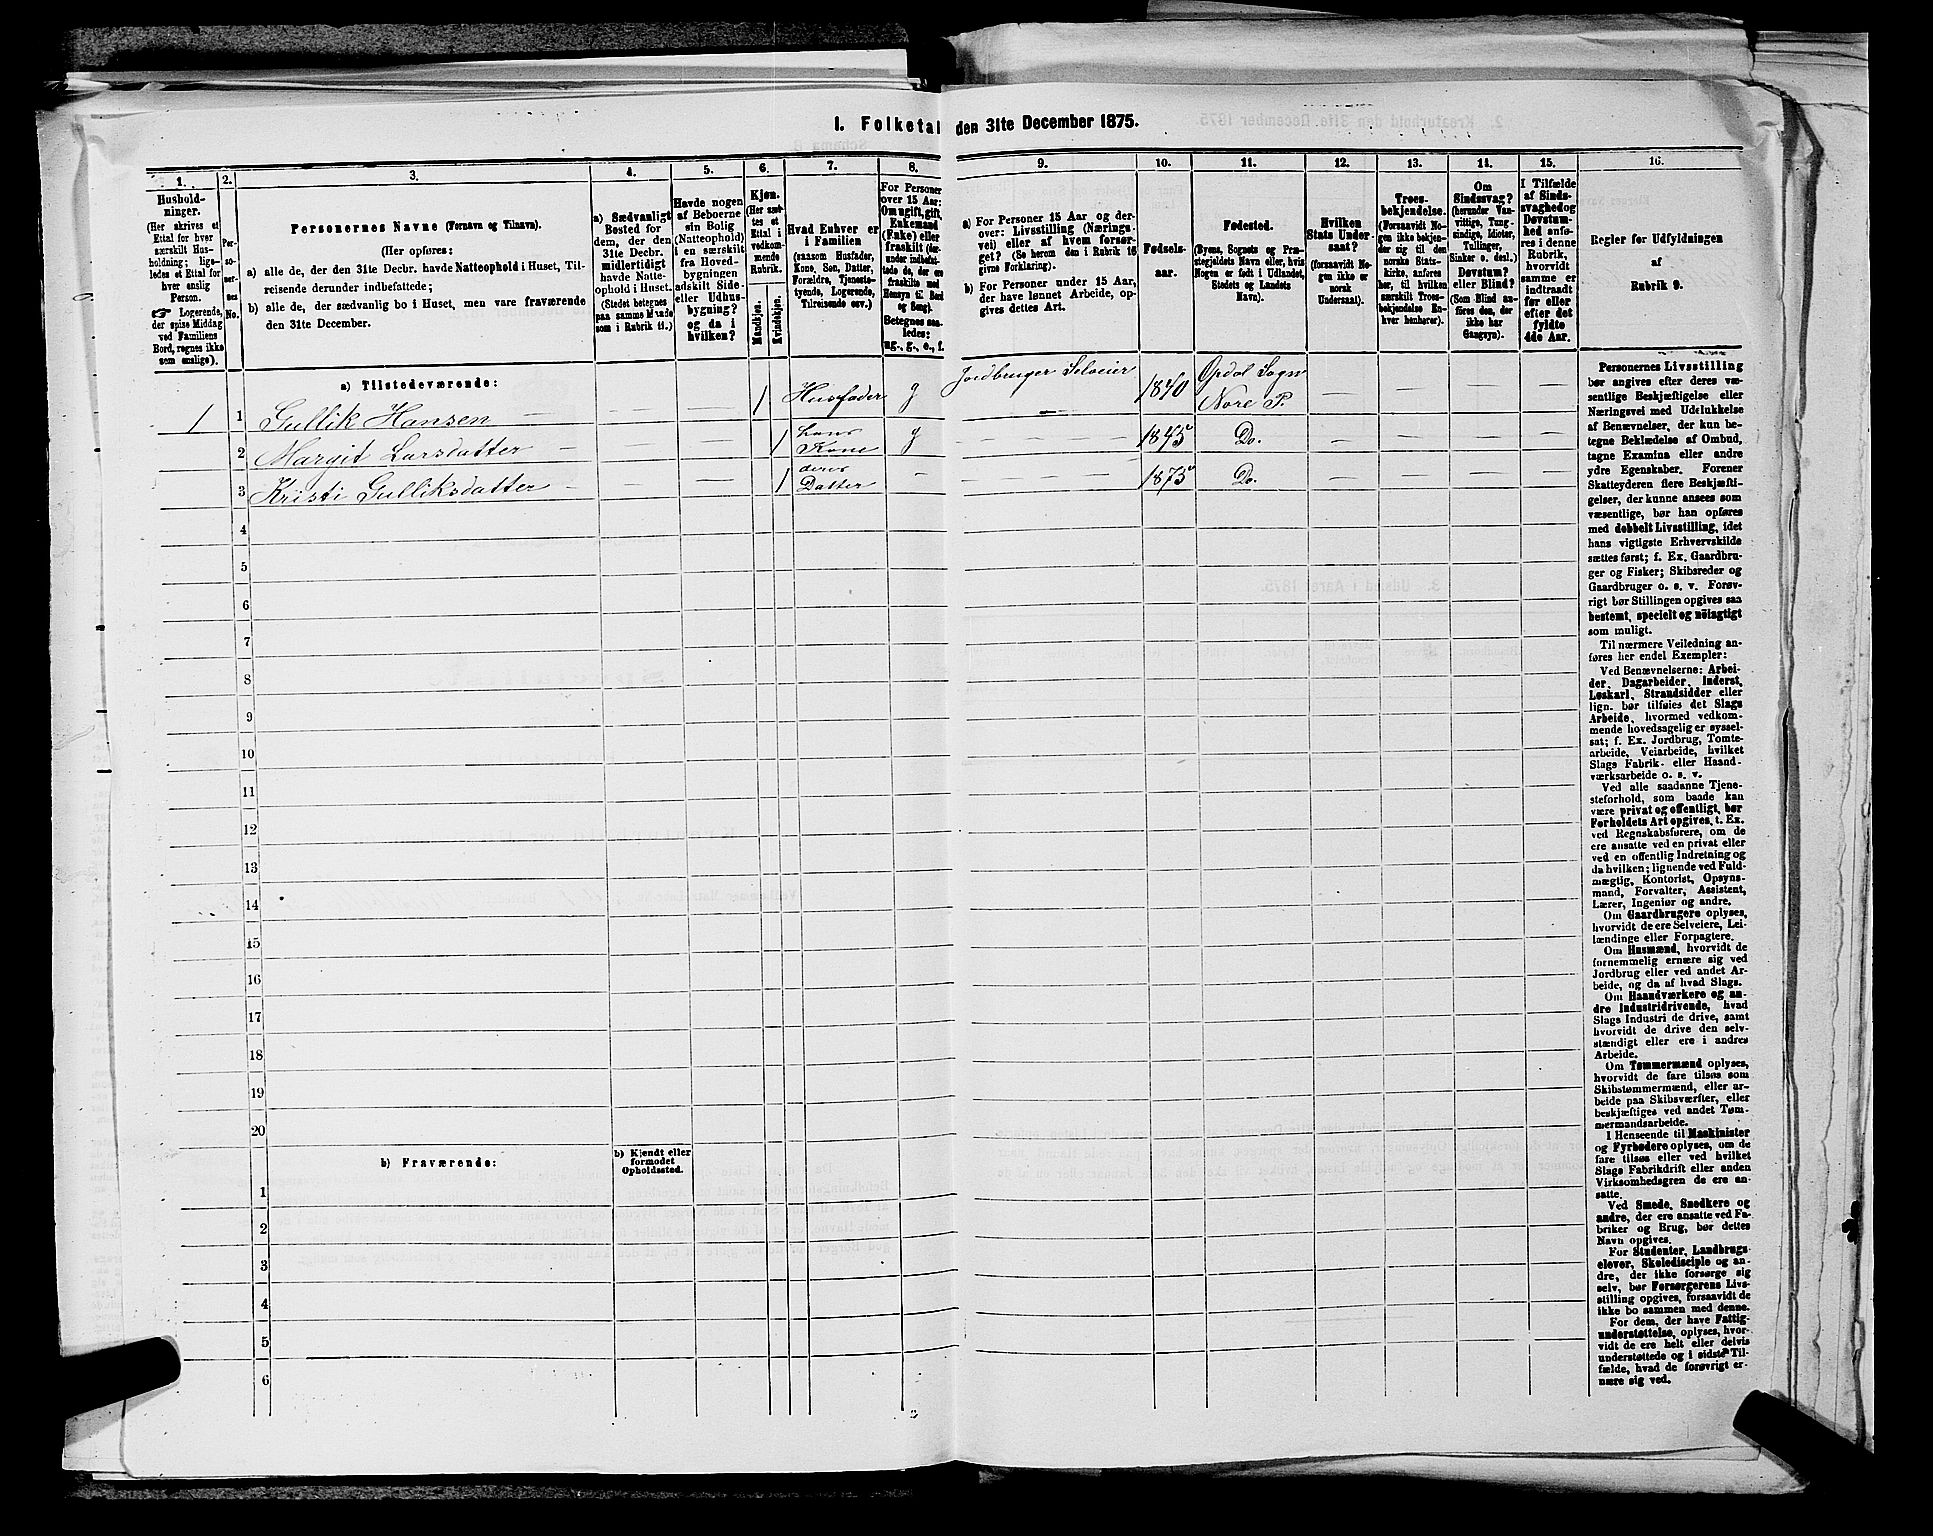 I. Folketal den 31te December 1875.
1.
Hushold-
ninger.
(Her skrives et
Ettal for hver
særskilt Hus-
holdning; lige-
ledes et Ettal for
hver enslig
Person.
☞ Logerende,
der spise Middag
ved Familiens
Bord, regnes ikke
som enslige).
2.
Per-
so-
ner-
nes
No.
3.
Personernes Navne (Fornavn og Tilnavn).
(Her opføres:
a) alle de, der den 31te Decbr. havde Natteophold i Huset, Til-
reisende derunder indbefattede;
b) alle de, der sædvanlig bo i Huset, men vare fraværende
den 31te December.
4.
a) Sædvanligt
Bosted for
dem, der den
31te Decbr.
midlertidigt
havde Natte-
ophold i Huset.
(Stedet betegnes
paa samme Maade
som i Rubrik 11.)
5.
Havde nogen
af Beboerne
sin Bolig
(Natteophold)
i en særskilt
fra Hoved-
bygningen
adskilt Side-
eller Udhus-
bygning?
og da i
hvilken?
6.
Kjøn.
(Her sæt-
tes et
Ettal i
vedkom-
mende
Rubrik.
Mandkjøn.
Kvindekjøn.
7.
Hvad Enhver er
i Familien
(saasom Husfader,
Kone, Søn, Datter,
Forældre, Tjeneste-
tyende, Logerende,
Tilreisende osv.)
8.
For Personer
over 15 Aar:
Om ugift, gift,
Enkemand
(Enke) eller
fraskilt (her-
under indbefat-
tede de, der ere
fraskilte med
Hensyn til Bord
og Seng).
Betegnes saa-
ledes:
ug., g., e., f.
9.
a) For Personer 15 Aar og der-
over: Livsstilling (Nærings-
vei) eller af hvem forsør-
get? (Se herom den i Rubrik 16
givne Forklaring).
b) For Personer under 15 Aar,
der have lønnet Arbeide, op-
gives dettes Art.
10.
Fødsels-
aar.
11.
Fødested.
(Byens, Sognets og Præ-
stegjeldets Navn eller, hvis
Nogen er født i Udlandet,
Stedets og Landets
Navn).
12.
Hvilken
Stats Under-
saat?
(forsaavidt No-
gen ikke er
norsk
Undersaat).
13.
Troes-
bekjendelse.
(Forsaavidt No-
gen ikke bekjen-
der sig til den
norske Stats-
kirke, anføres
her, til hvilken
særskilt Troes-
bekjendelse En-
hver henhører).
14.
Om
Sindssvag?
(herunder Van-
vittige, Tung-
sindige, Idioter,
Tullinger,
Sinker o. desl.)
Døvstum?
eller Blind?
(Som Blind an-
føres den, der
ikke har
Gangsyn).
15.
I Tilfælde
af Sinds-
svaghed og
Døvstum-
hed anfø-
res i denne
Rubrik,
hvorvidt
samme er
indtraadt
før eller
efter det
fyldte
4de Aar.
16.
Regler for Udfyldningen
af
Rubrik 9.
a) Tilstedeværende:
1 1 Gullik Hansen — — 1 Husfader g Jordbruger Selveier 1840 Opdal Sogn Nore P. — — — —
2 Margit Larsdatter — — — 1 hans Kone g — — — — 1845 Do. — — — —
3 Kristi Gulliksdatter — — — 1 deres Datter — — — — — 1875 Do. — — — —
4
5
6
7
8
9
10
11
12
13
14
15
16
17
18
19
20
b) Fraværende:
b) Kjendt eller
formodet
Opholdssted.
1
2
3
4
5
6
Personernes Livsstilling
bør angives efter deres væ-
sentlige Beskjæftigelse eller
Næringsvei med Udelukkelse
af Benævnelser, der kun be-
tegne Beklædelse af Ombud,
tagne Examina eller andre
ydre Egenskaber. Forener
Skatteyderen flere Beskjæfti-
gelser, der kunne ansees som
væsentlige, bør han opføres
med dobbelt Livsstilling, idet
hans vigtigste Erhvervskilde
sættes først; f. Ex. Gaardbru-
ger og Fisker; Skibsreder og
Gaardbruger o. s. v. Forøv-
rigt bør Stillingen opgives saa
bestemt, specielt og nøiagtigt
som muligt.
Til nærmere Veiledning an-
føres her endel Exempler:
Ved Benævnelserne: Arbei-
der, Dagarbeider, Inderst,
Løskarl, Strandsidder eller
lign. bør tilføies det Slags
Arbeide, hvormed vedkom-
mende hovedsagelig er syssel-
sat; f. Ex. Jordbrug, Tomte-
arbeide, Veiarbeide, hvilket
Slags Fabrik- eller Haand-
værksarbeide o. s. v.
Ved alle saadanne Tjene-
steforhold, som baade kan
være privat og offentligt, bør
Forholdets Art opgives, t. Ex.
ved Regnskabsførere, om de
ere ansatte ved en privat eller
ved en offentlig Indretning og
da hvilken; lignende ved Fuld-
mægtig, Kontorist, Opsyns-
mand, Forvalter, Assistent,
Lærer, Ingeniør og andre.
Om Gaardbrugere oplyses,
hvorvidt de ere Selveiere, Lei-
lændinge eller Forpagtere.
Om Husmænd, hvorvidt de
fornemmelig ernære sig ved
Jordbrug eller ved andet Ar-
beide, og da af hvad Slags.
Om Haandværkere og an-
dre Industridrivende, hvad
Slags Industri de drive, samt
hvorvidt de drive den selv-
stændigt eller ere i andres
Arbeide.
Om Tømmermænd oplyses,
hvorvidt de fare tilsøs som
Skibstømmermænd, eller ar-
beide paa Skibsværfter, eller
beskjæftiges ved andet Tøm-
mermandsarbeide.
I Henseende til Maskinister
og Fyrbødere oplyses, om de
fare tilsøs eller ved hvilket
Slags Fabrikdrift eller anden
Virksomhedsgren de ere an-
satte.
Ved Smede, Snedkere og
andre, der ere ansatte ved Fa-
briker og Brug, bør dettes
Navn opgives.
For Studenter, Landbrugs-
elever, Skoledisciple og an-
dre, der ikke forsørge sig
selv, bør Forsørgerens Livs-
stilling opgives, forsaavidt de
ikke bo sammen med denne.
For dem, der have Fattig-
understøttelse, oplyses, hvor-
vidt de ere helt eller delvis
understøttede og i sidste Til-
fælde, hvad de forøvrigt er-
nære sig ved.